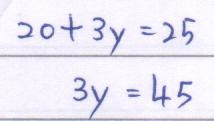 20+3y=25
3y=45